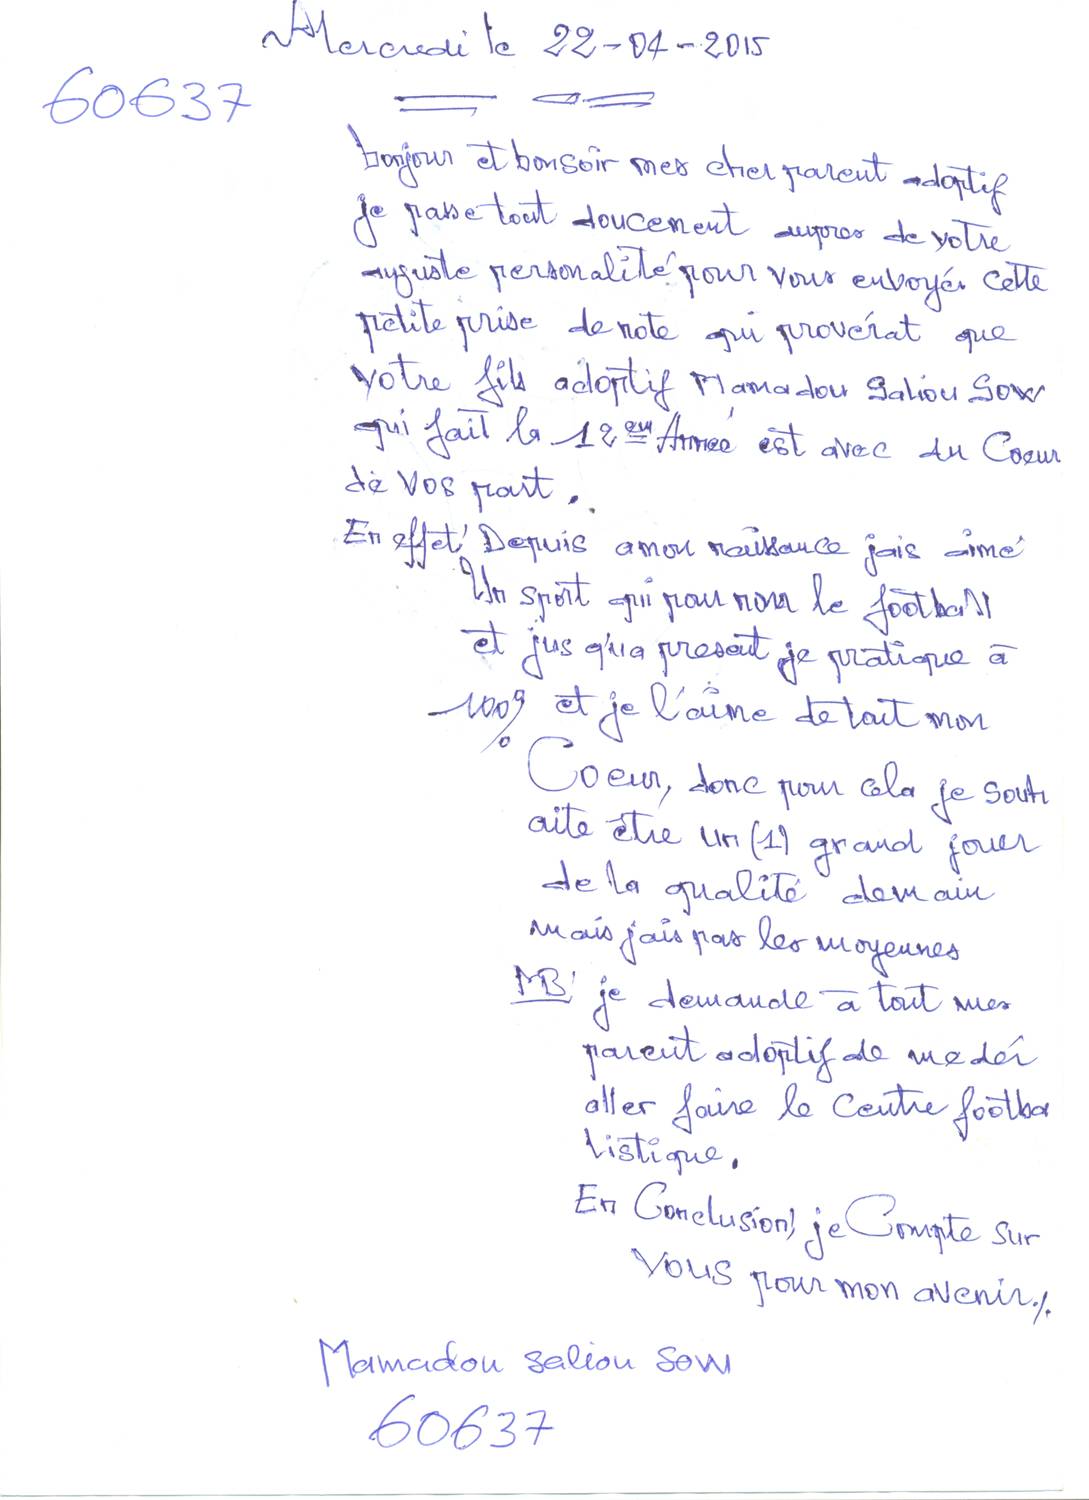 Mercredi le 22-04-2015
60637
bonjour et bonsoir mes cher parent adoptif
je passe tout doucement aupres de votre
auguste personalité pour vous envoyér cette
petite prise de note qui provérat que
votre fils adoptif Mamadou Saliou Sow
qui fait la 12em Année est avec du Coeur
de vos part.
En effet' Depuis a mon naissance jais aimé
Un sport qui pour nom le football
et jus qu'a present je pratique à
100% et je l'aime de tout mon
Coeur, donc pour cela je souh
aite être un (1) grand jouer
de la qualité demain
mais jais pas les moyennes
NB' je demande à tout mes
parent adoptif de me
aller faire le Centre footba
listique.
En Conclusion, je Compte sur
Vous pour mon avenir./.
Mamadou saliou sow
60637